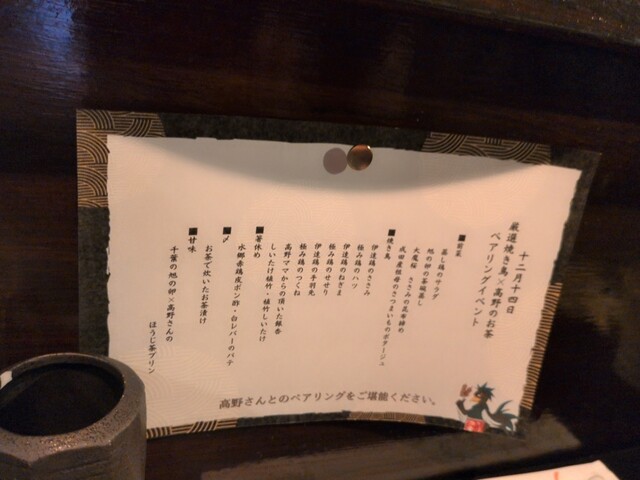 十二月十四日
厳選焼き鳥×高野のお茶
ペアリングイベント
■前菜
蒸し鶏のサラダ
旭の卵の茶碗蒸し
大魔桜 ささみの昆布締め
成田産祖母のさつまいものポタージュ
■焼き鳥
伊達鶏のささみ
極み鶏のハツ
伊達鶏のねぎま
極み鶏のせせり
伊達鶏の手羽先
極み鶏のつくね
高野ママからの頂いた銀杏
しいたけ植竹・植竹しいたけ
■箸休め
水郷赤鶏皮ポン酢・白レバーのパテ
■〆
お茶で炊いたお茶漬け
■甘味
千葉の旭の卵×高野さんの
ほうじ茶プリン
高野さんとのペアリングをご堪能ください。